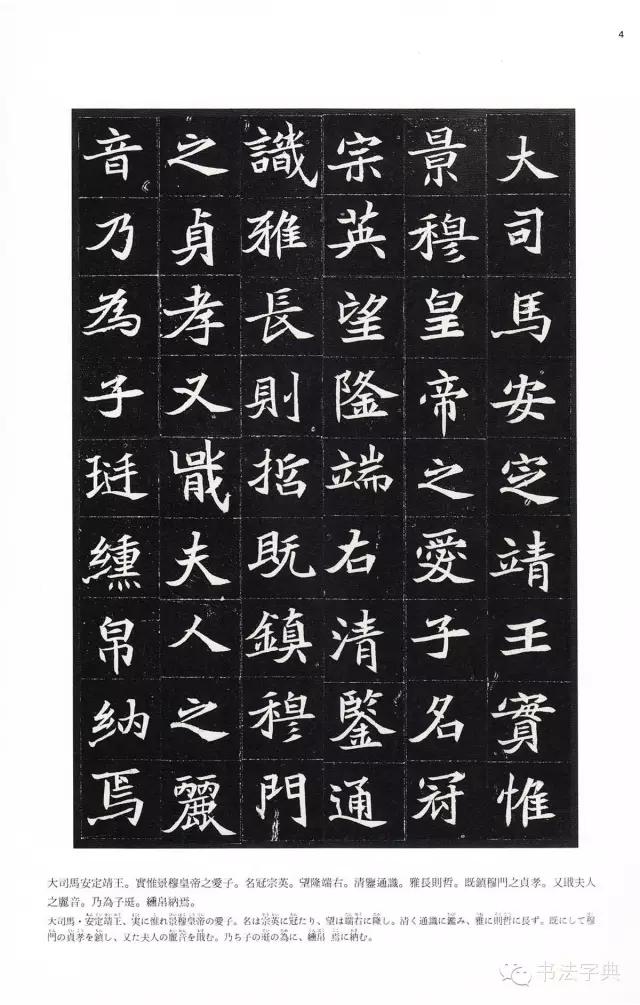 4
大司馬安定靖王實惟
景穆皇帝之愛子名冠
宗英望隆端右清鑒通
識雅長則哲既鎮穆門
之貞孝又戢夫人之麗
音乃為子珽纁帛納焉
大司馬安定靖王。實惟景穆皇帝之愛子。名冠宗英。望隆端右。清鑒通識。雅長則哲。既鎮穆門之貞孝。又戢夫人
之麗音。乃為子珽。纁帛納焉。
大司馬・安定靖王、実に惟れ景穆皇帝の愛子。名は宗英に冠たり、望は端右に隆し。清く通識に鑑み、雅に則哲に長ず。既にして穆
門の貞孝を鎮し、又た夫人の麗音を戢む。乃ち子の珽の為に、纁帛 焉に納む。
书法字典